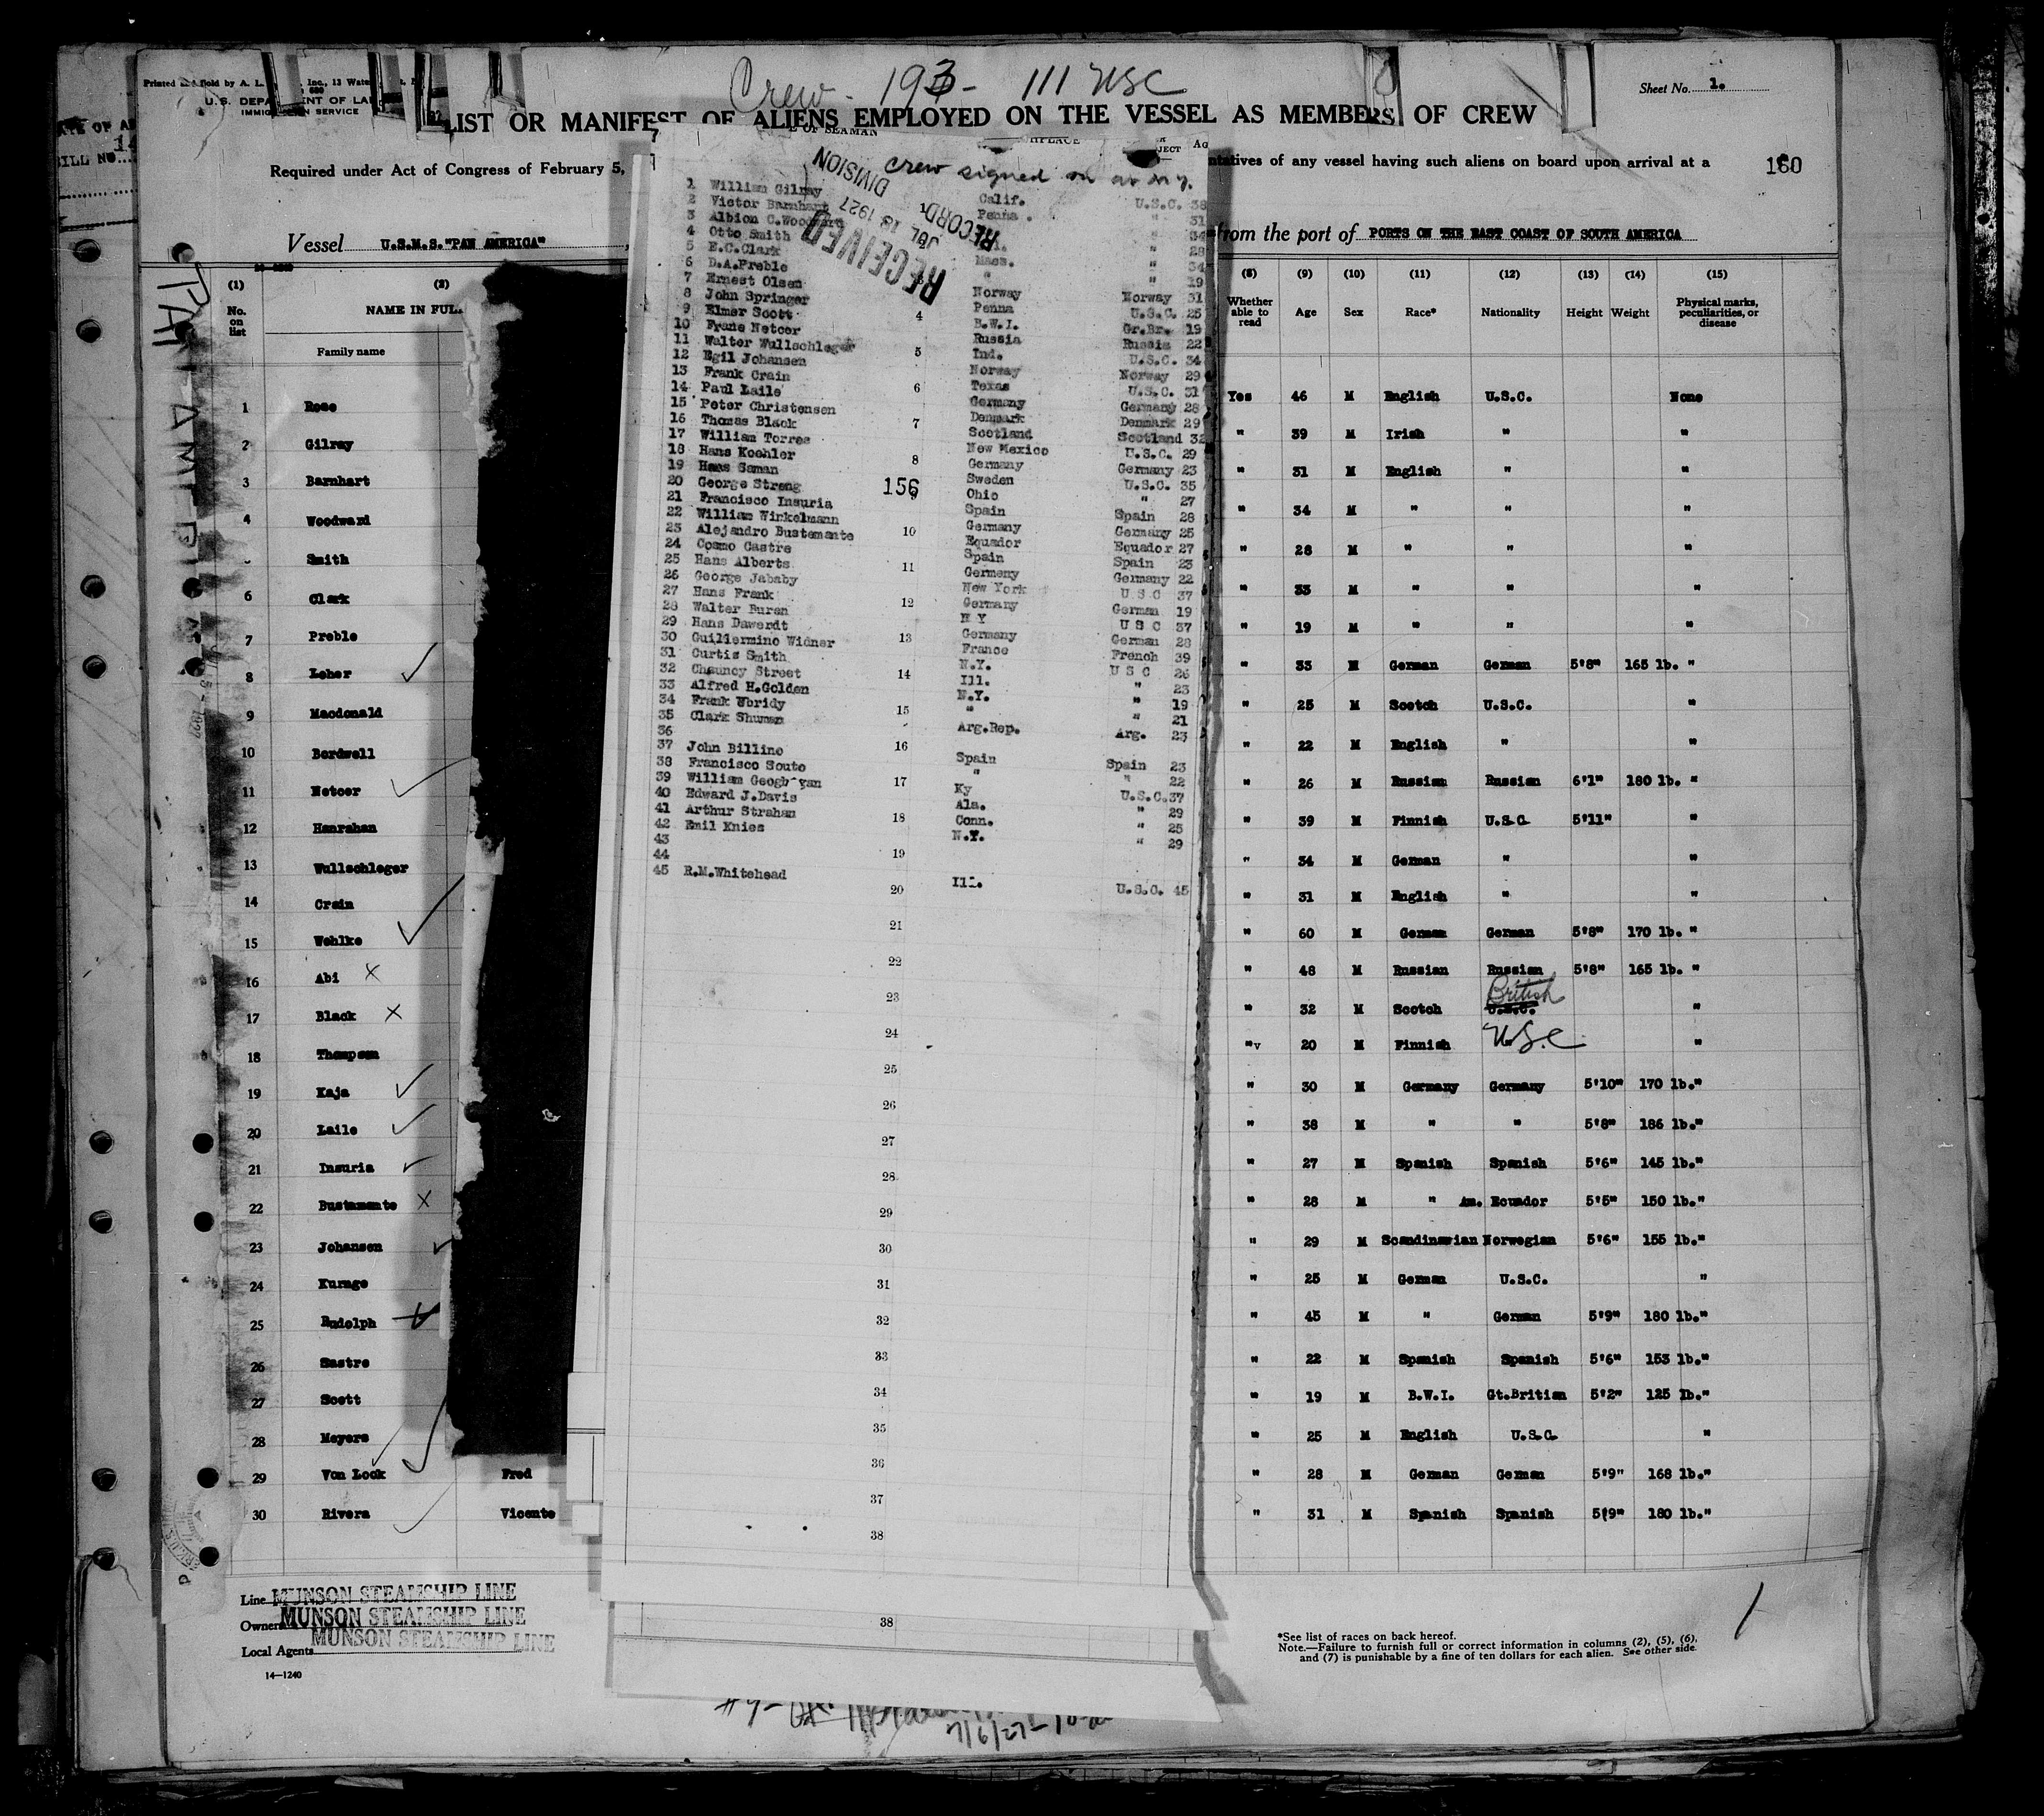 Crew - 193 - 111 USC
Printed and Sold by A. L. Inc., 13 Water
U.S. DEPARTMENT OF LA
IMMIGRATION SERVICE
Sheet No. 1.
LIST OR MANIFEST OF ALIENS EMPLOYED ON THE VESSEL AS MEMBERS OF CREW
Required under Act of Congress of February 5,
ntatives of any vessel having such aliens on board upon arrival at a
160
Vessel U.S.M.S. "PAN AMERICA"
from the port of PORTS ON THE EAST COAST OF SOUTH AMERICA
BILL NO.
PAN AMERI
(1) (2) (8) (9) (10) (11) (12) (13) (14) (15)
No. on list
NAME IN FUL
Family name
Whether able to read Age Sex Race* Nationality Height Weight Physical marks, peculiarities, or disease
1 Rose Yes 46 M English U.S.C. None
2 Gilray " 39 M Irish " "
3 Barnhart " 31 M English " "
4 Woodward " 34 M " " "
Smith " 28 M " " "
6 Clark " 33 M " " "
7 Preble " 19 M " " "
8 Loher " 33 M German German 5'8" 165 lb. "
9 Macdonald " 25 M Scotch U.S.C. "
10 Bordwell " 22 M English " "
11 Netcer " 26 M Russian Russian 6'1" 180 lb. "
12 Hanrahan " 39 M Finnish U.S.C. 5'11" "
13 Wullschleger " 34 M German " "
14 Crain " 31 M English " "
15 Wehlke " 60 M German German 5'8" 170 lb. "
16 Abi X " 48 M Russian Russian 5'8" 165 lb. "
17 Black X " 32 M Scotch U.S.C. British "
18 Thompson " 20 M Finnish USC "
19 Kaja " 30 M Germany Germany 5'10" 170 lb."
20 Laile " 38 M " " 5'8" 186 lb."
21 Insuria " 27 M Spanish Spanish 5'6" 145 lb."
22 Bustamante X " 28 M " Am. Ecuador 5'5" 150 lb."
23 Johansen " 29 M Scandinavian Norwegian 5'6" 155 lb."
24 Kurage " 25 M German U.S.C. "
25 Rudolph " 45 M " German 5'9" 180 lb."
26 Sastre " 22 M Spanish Spanish 5'6" 153 lb."
27 Scott " 19 M B.W.I. Gt.Britian 5'2" 125 lb."
28 Meyers " 25 M English U.S.C. "
29 Von Look Fred " 28 M German German 5'9" 168 lb."
30 Rivera Vicente " 31 M Spanish Spanish 5'9" 180 lb."
OF SEAMAN
HPLACE
JECT
crew signed on at N.Y.
RECEIVED
JUL 13 1927
RECORD
DIVISION
1 William Gilray Calif. U.S.C. 38
2 Victor Barnhart Penna. " 31
3 Albion C.Woodward " 34
4 Otto Smith " 28
5 E.C.Clark Mass. " 34
6 D.A.Preble " " 19
7 Ernest Olsen Norway Norway 31
8 John Springer Penna U.S.C. 25
9 Elmer Scott B.W.I. Gr.Br. 19
10 Frans Netcer Russia Russia 22
11 Walter Wullschleger Ind. U.S.C. 34
12 Egil Johansen Norway Norway 29
13 Frank Crain Texas U.S.C. 31
14 Paul Laile Germany Germany 28
15 Peter Christensen Denmark Denmark 29
16 Thomas Black Scotland Scotland 32
17 William Torres New Mexico U.S.C. 29
18 Hans Koehler Germany Germany 23
19 Hans Saman Sweden U.S.C. 35
20 George Streng Ohio " 27
156
21 Francisco Insuria Spain Spain 28
22 William Winkelmann Germany Germany 25
23 Alejandro Bustemante Equador Equador 27
24 Cosmo Castre Spain Spain 23
25 Hans Alberts Germany Germany 22
26 George Jababy New York U S C 37
27 Hans Frank Germany German 19
28 Walter Buren N Y U S C 37
29 Hans Dawerdt Germany German 28
30 Guillermino Widner France French 39
31 Curtis Smith N.Y. U S C 26
32 Chauncy Street Ill. " 23
33 Alfred H.Golden N.Y. " 19
34 Frank Ubridy " " 21
35 Clark Shuman Arg.Rep. Arg. 23
36
37 John Billino Spain Spain 23
38 Francisco Souto " " 22
39 William Geoghgan Ky U.S.C. 37
40 Edward J.Davis Ala. " 29
41 Arthur Strahan Conn. " 25
42 Emil Knies N.Y. " 29
43
44
45 R.M.Whitehead Ill. U.S.C. 45
4
5
6
7
8
9
10
11
12
13
14
15
16
17
18
19
20
21
22
23
24
25
26
27
28
29
30
31
32
33
34
35
36
37
38
38
Line MUNSON STEAMSHIP LINE
Owners MUNSON STEAMSHIP LINE
Local Agents MUNSON STEAMSHIP LINE
14—1240
*See list of races on back hereof.
Note.—Failure to furnish full or correct information in columns (2), (5), (6),
and (7) is punishable by a fine of ten dollars for each alien. See other side.
7/6/27